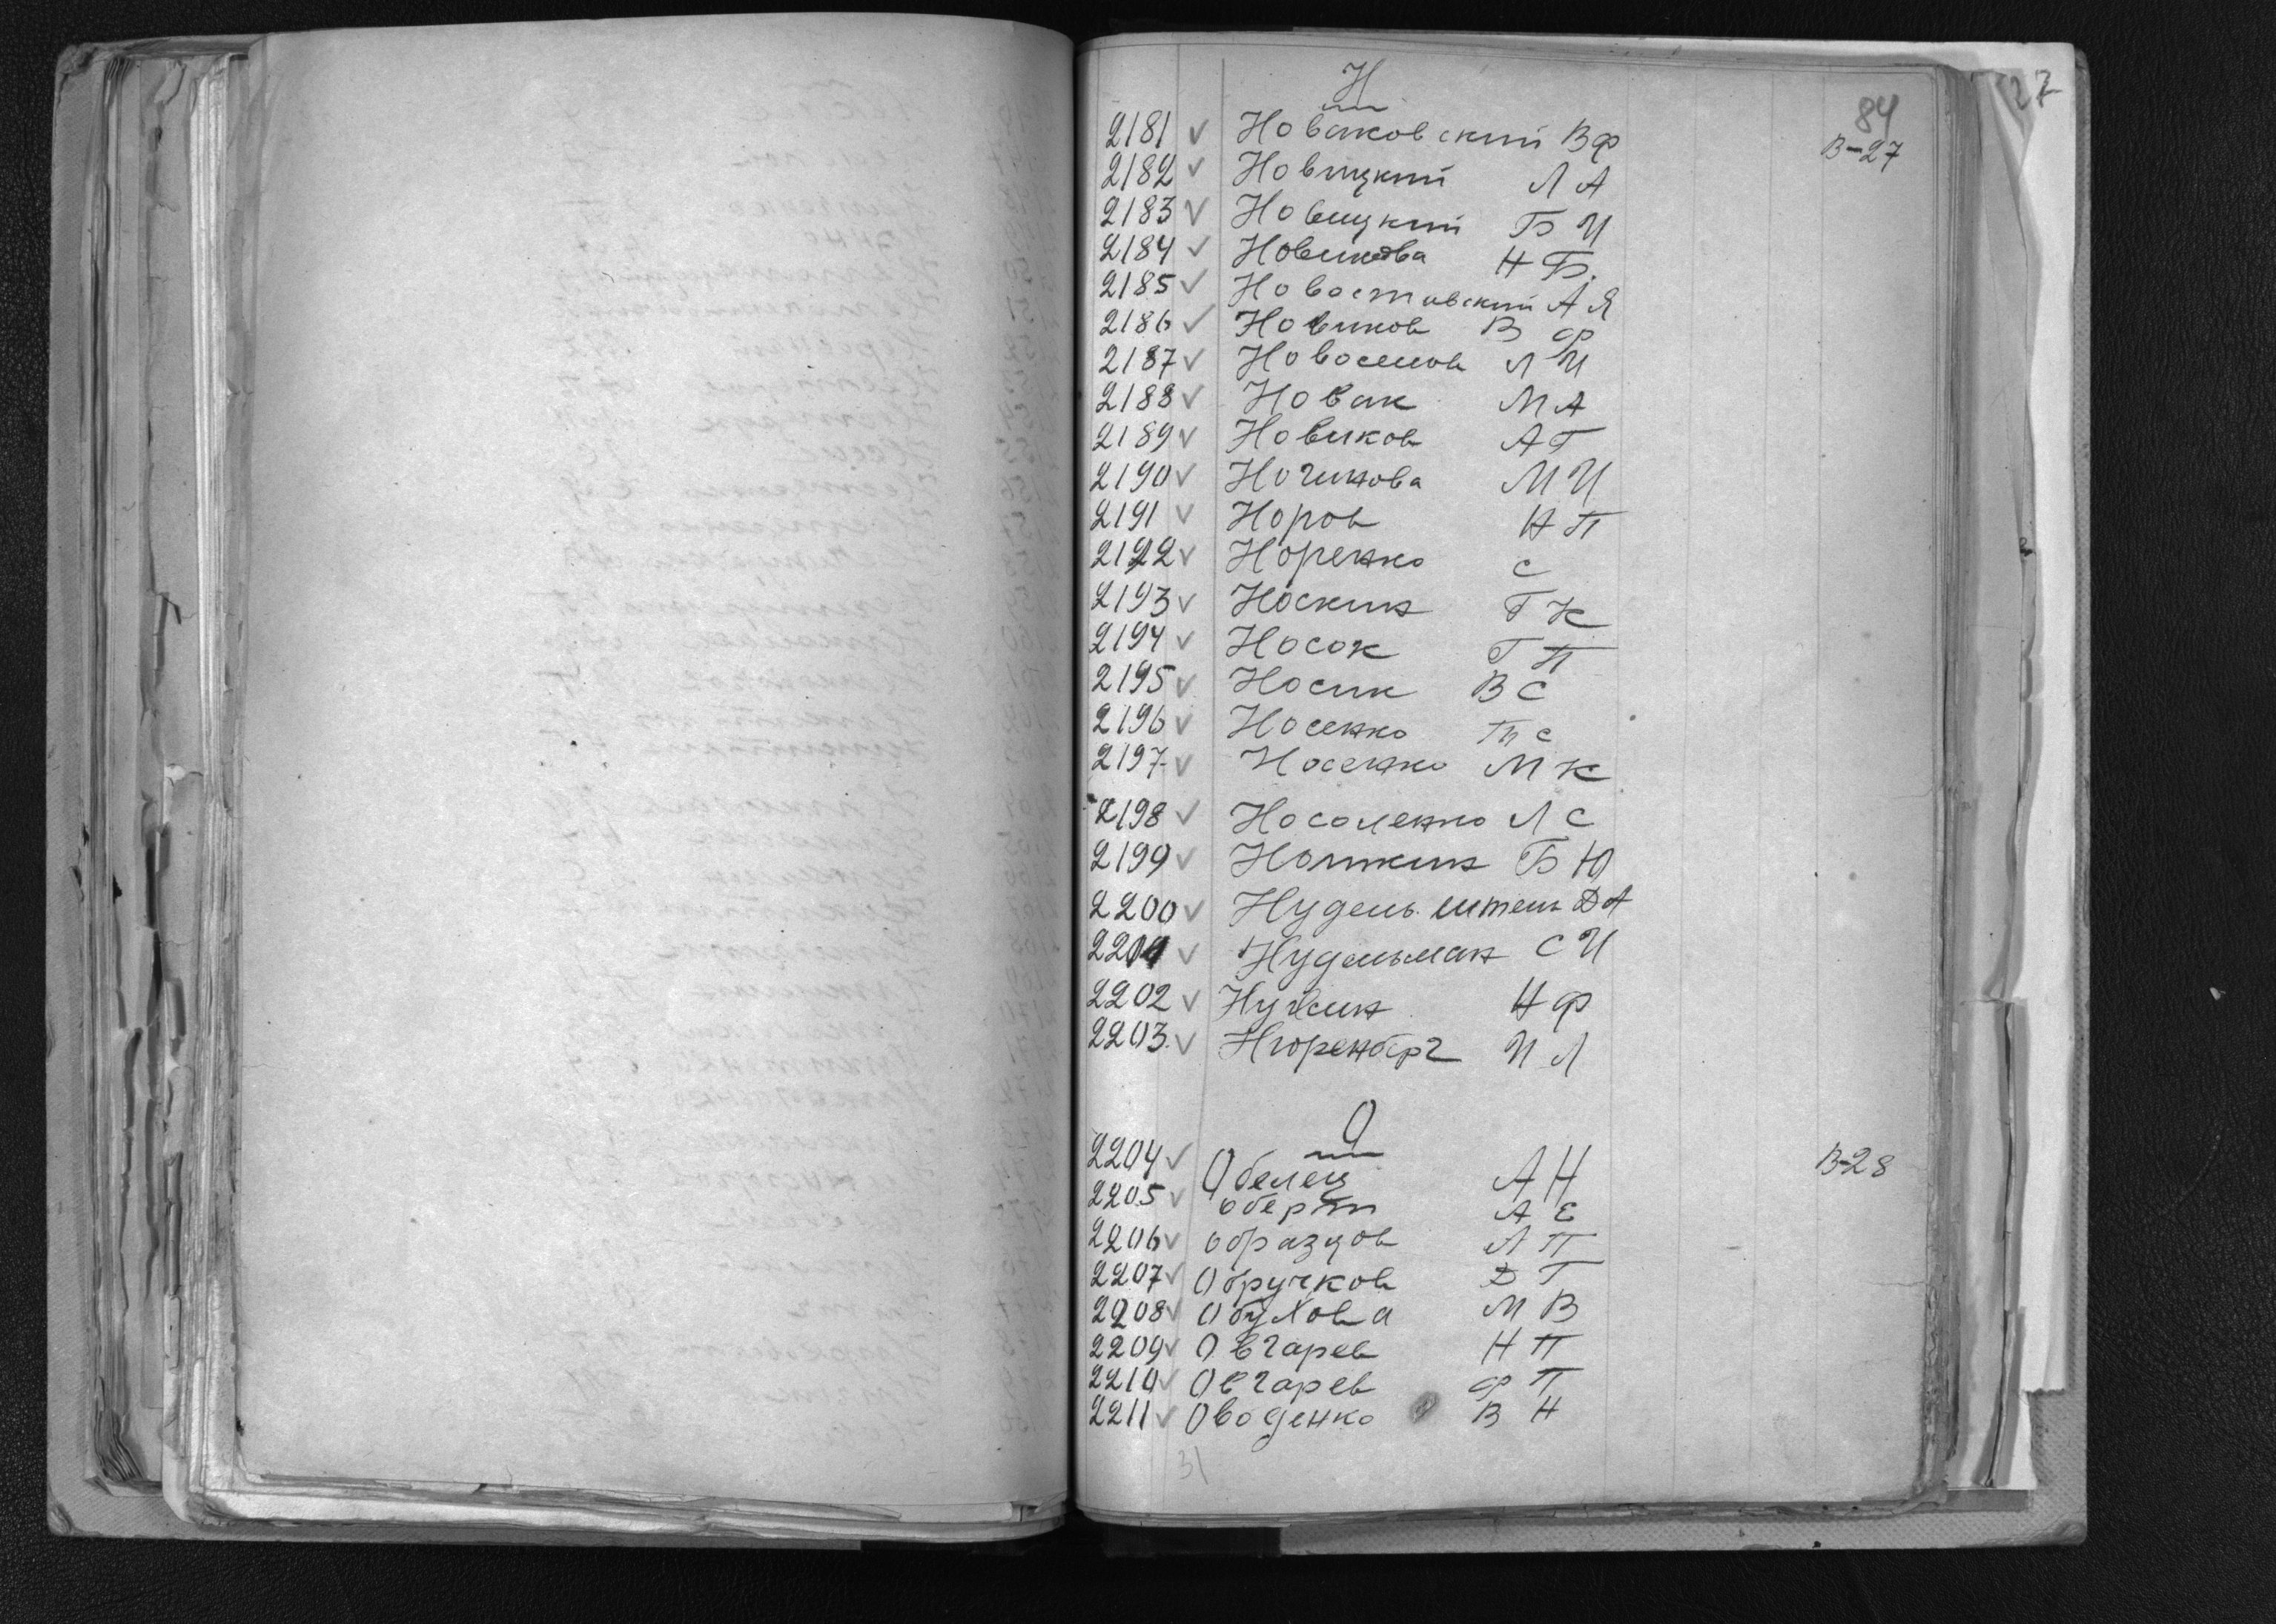 27
84
Н
2181 ✓ Новаковский В Ф В-27
2182 ✓ Новицкий Л А
2183 ✓ Новицкий Б И
2184 ✓ Новикова Н Б.
2185 ✓ Новоставский А Я
2186 ✓ Новиков В Ф
2187 ✓ Новоселов Л И
2188 ✓ Новак М А
2189 ✓ Новиков А Г
2190 ✓ Ночинова М И
2191 ✓ Норов Н П
2192 ✓ Норенко С
2193 ✓ Носкин Г К
2194 ✓ Носок Г П
2195 ✓ Носик В С
2196 ✓ Носенко Т С
2197 ✓ Носенко М К
2198 ✓ Носоленко Л С
2199 ✓ Ноткин Б Ю
2200 ✓ Нудель штейн Д А
2201 ✓ Нудельман С И
2202 ✓ Нужин Н Ф
2203. ✓ Нюренберг И Л
О
2204 ✓ Обелец А Н В-28
2205 ✓ Оберт А Е
2206 ✓ Образцов Л П
2207 ✓ Обручков Д Г
2208 ✓ Обухова М В
2209 ✓ Овчарев Н П
2210 ✓ Овчарев Ф П
2211 ✓ Оводенко В Н
31